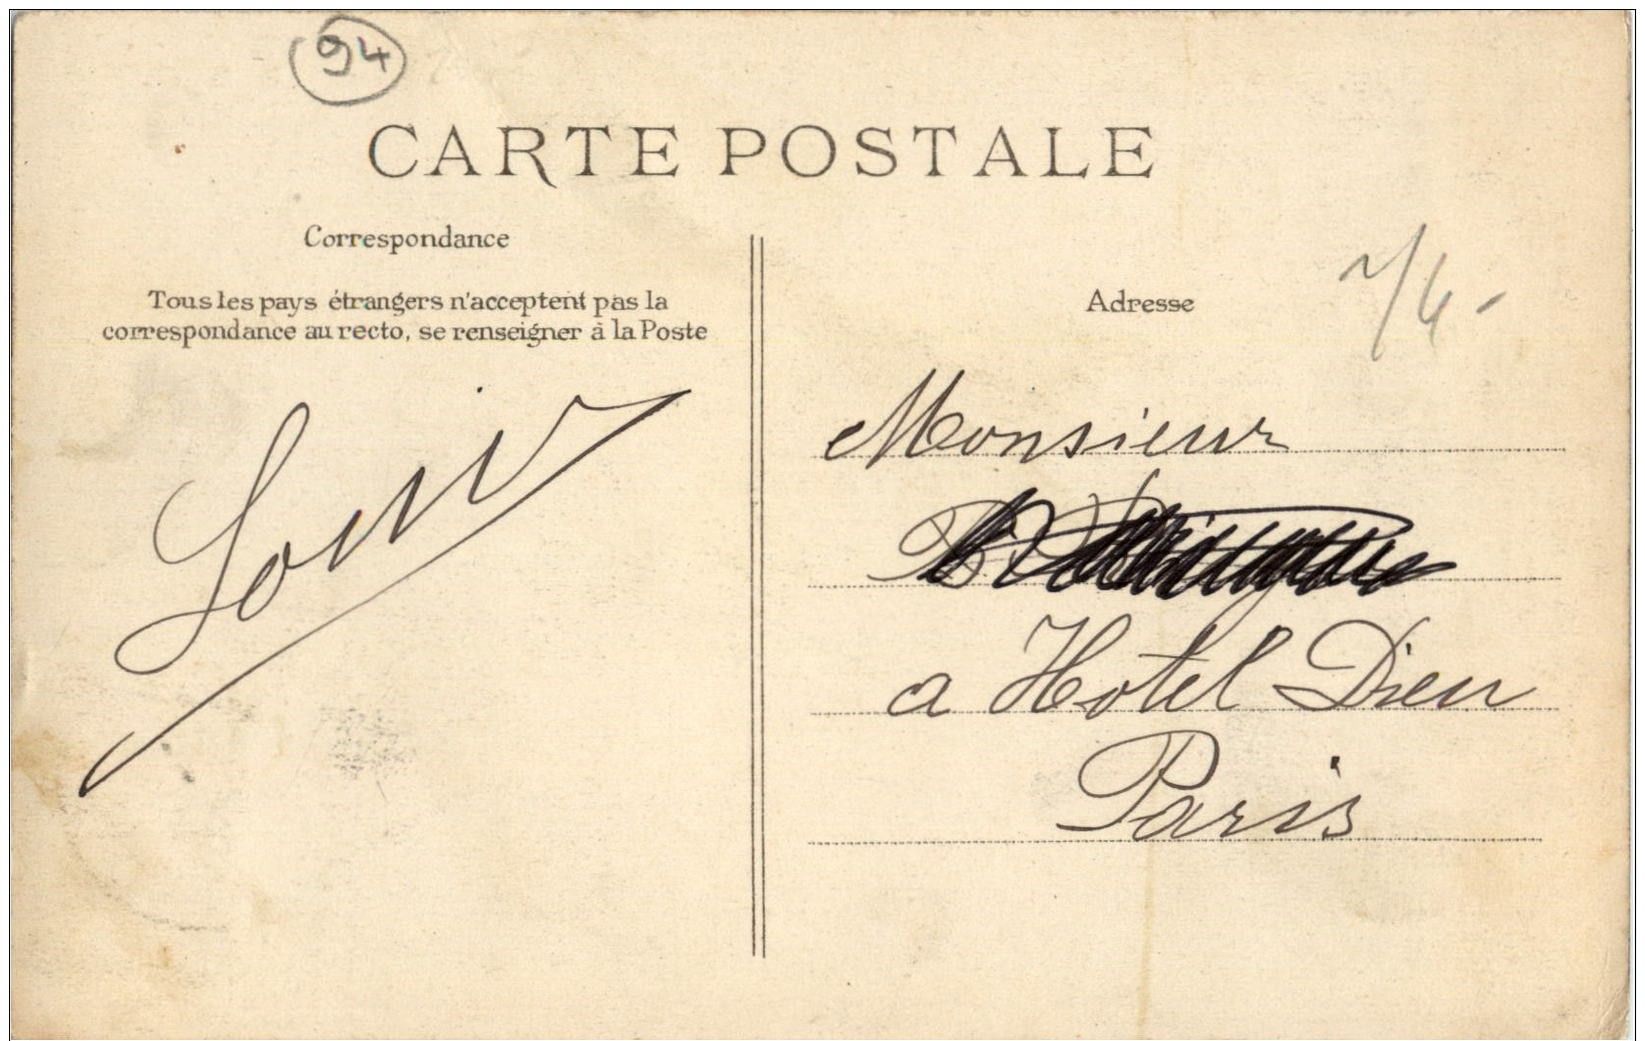 94
CARTE POSTALE
Correspondance
Tous les pays étrangers n'acceptent pas la
correspondance au recto, se renseigner à la Poste
Adresse
Monsieur
a Hotel Dieu
Paris